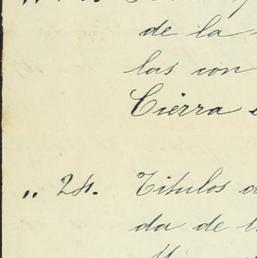 de la
las con
Cierra
„ 24. Titulos
da de